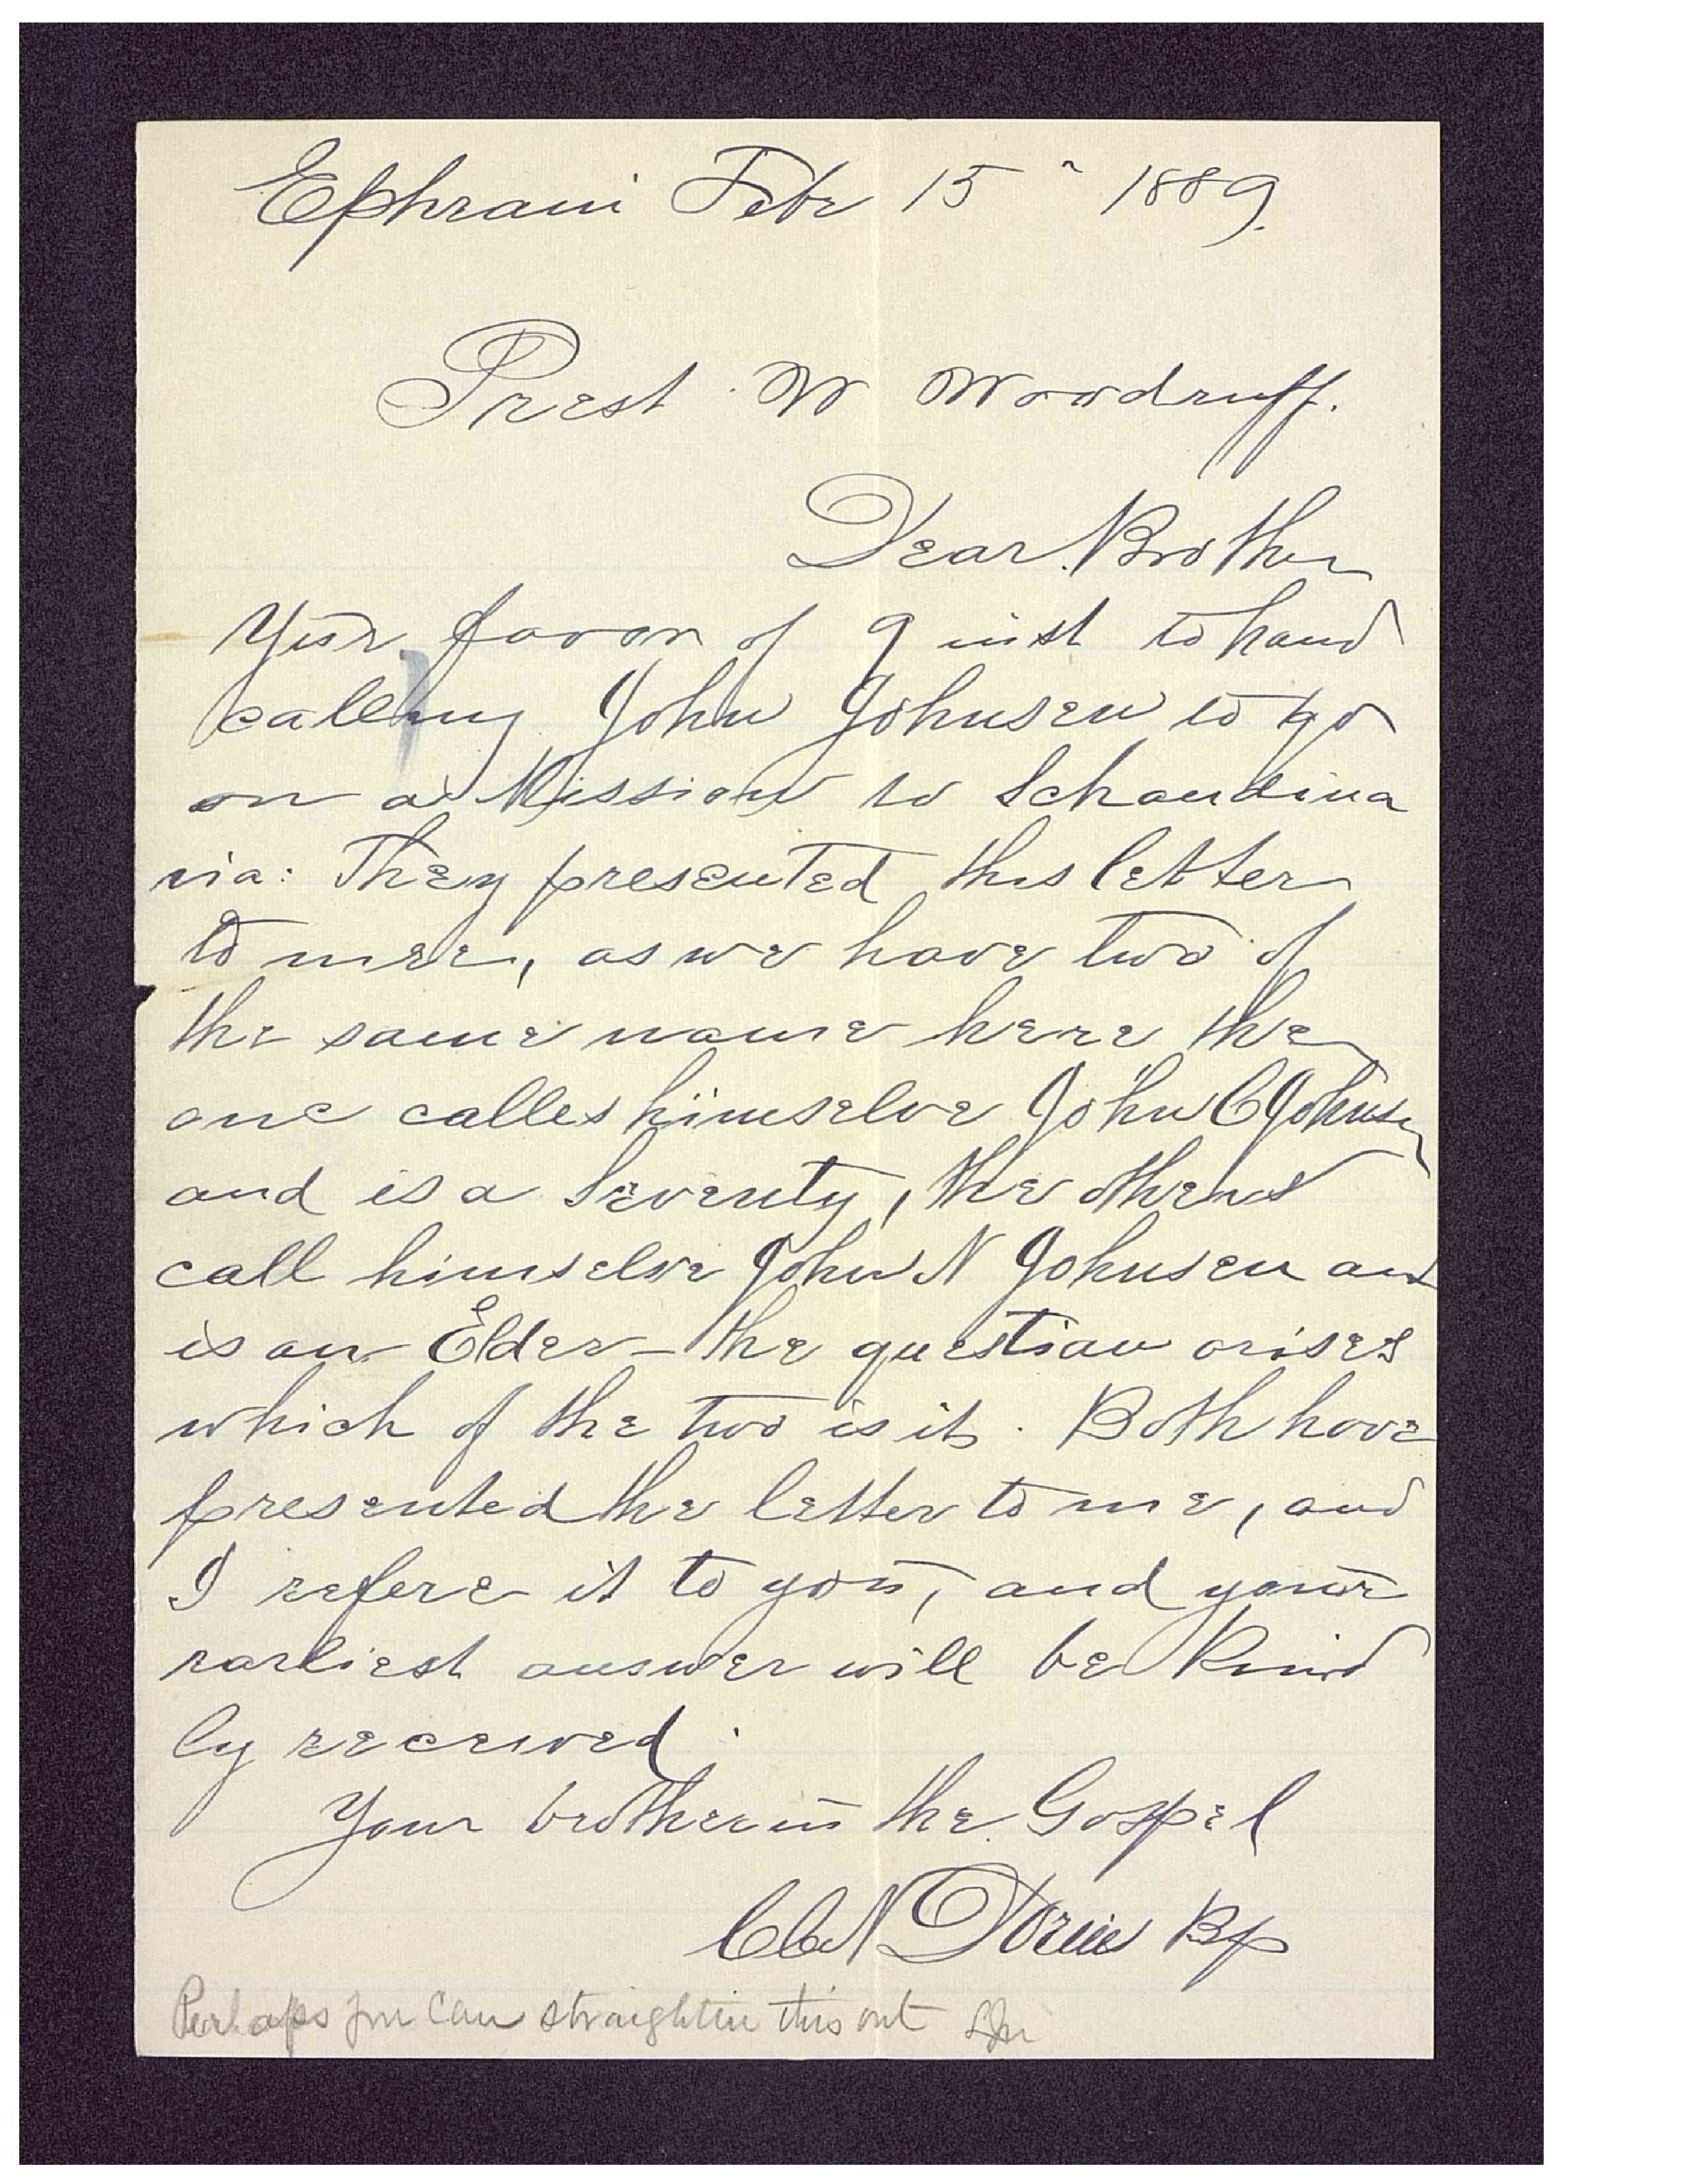 Ephraim Febr 15" 1889.
Prest. W Woodruff.
Dear Brother
Your favor of 9 inst to hand
calling John Johnsen to go
on a Mission to Schandina
via: They presented this letter
to mee, as we have two of
the same name here the
one calles himselve John C Johnsen
and is a Seventy, the others
call himselve John N Johnsen and
is an Elder – the question arises
which of the two is it. Both have
presented the letter to me, and
I refere it to you, and your
earliest answer will be kind
ly received.
Your brother in the Gospel
C C N Dorius Bp
Perhaps you can straighten this out